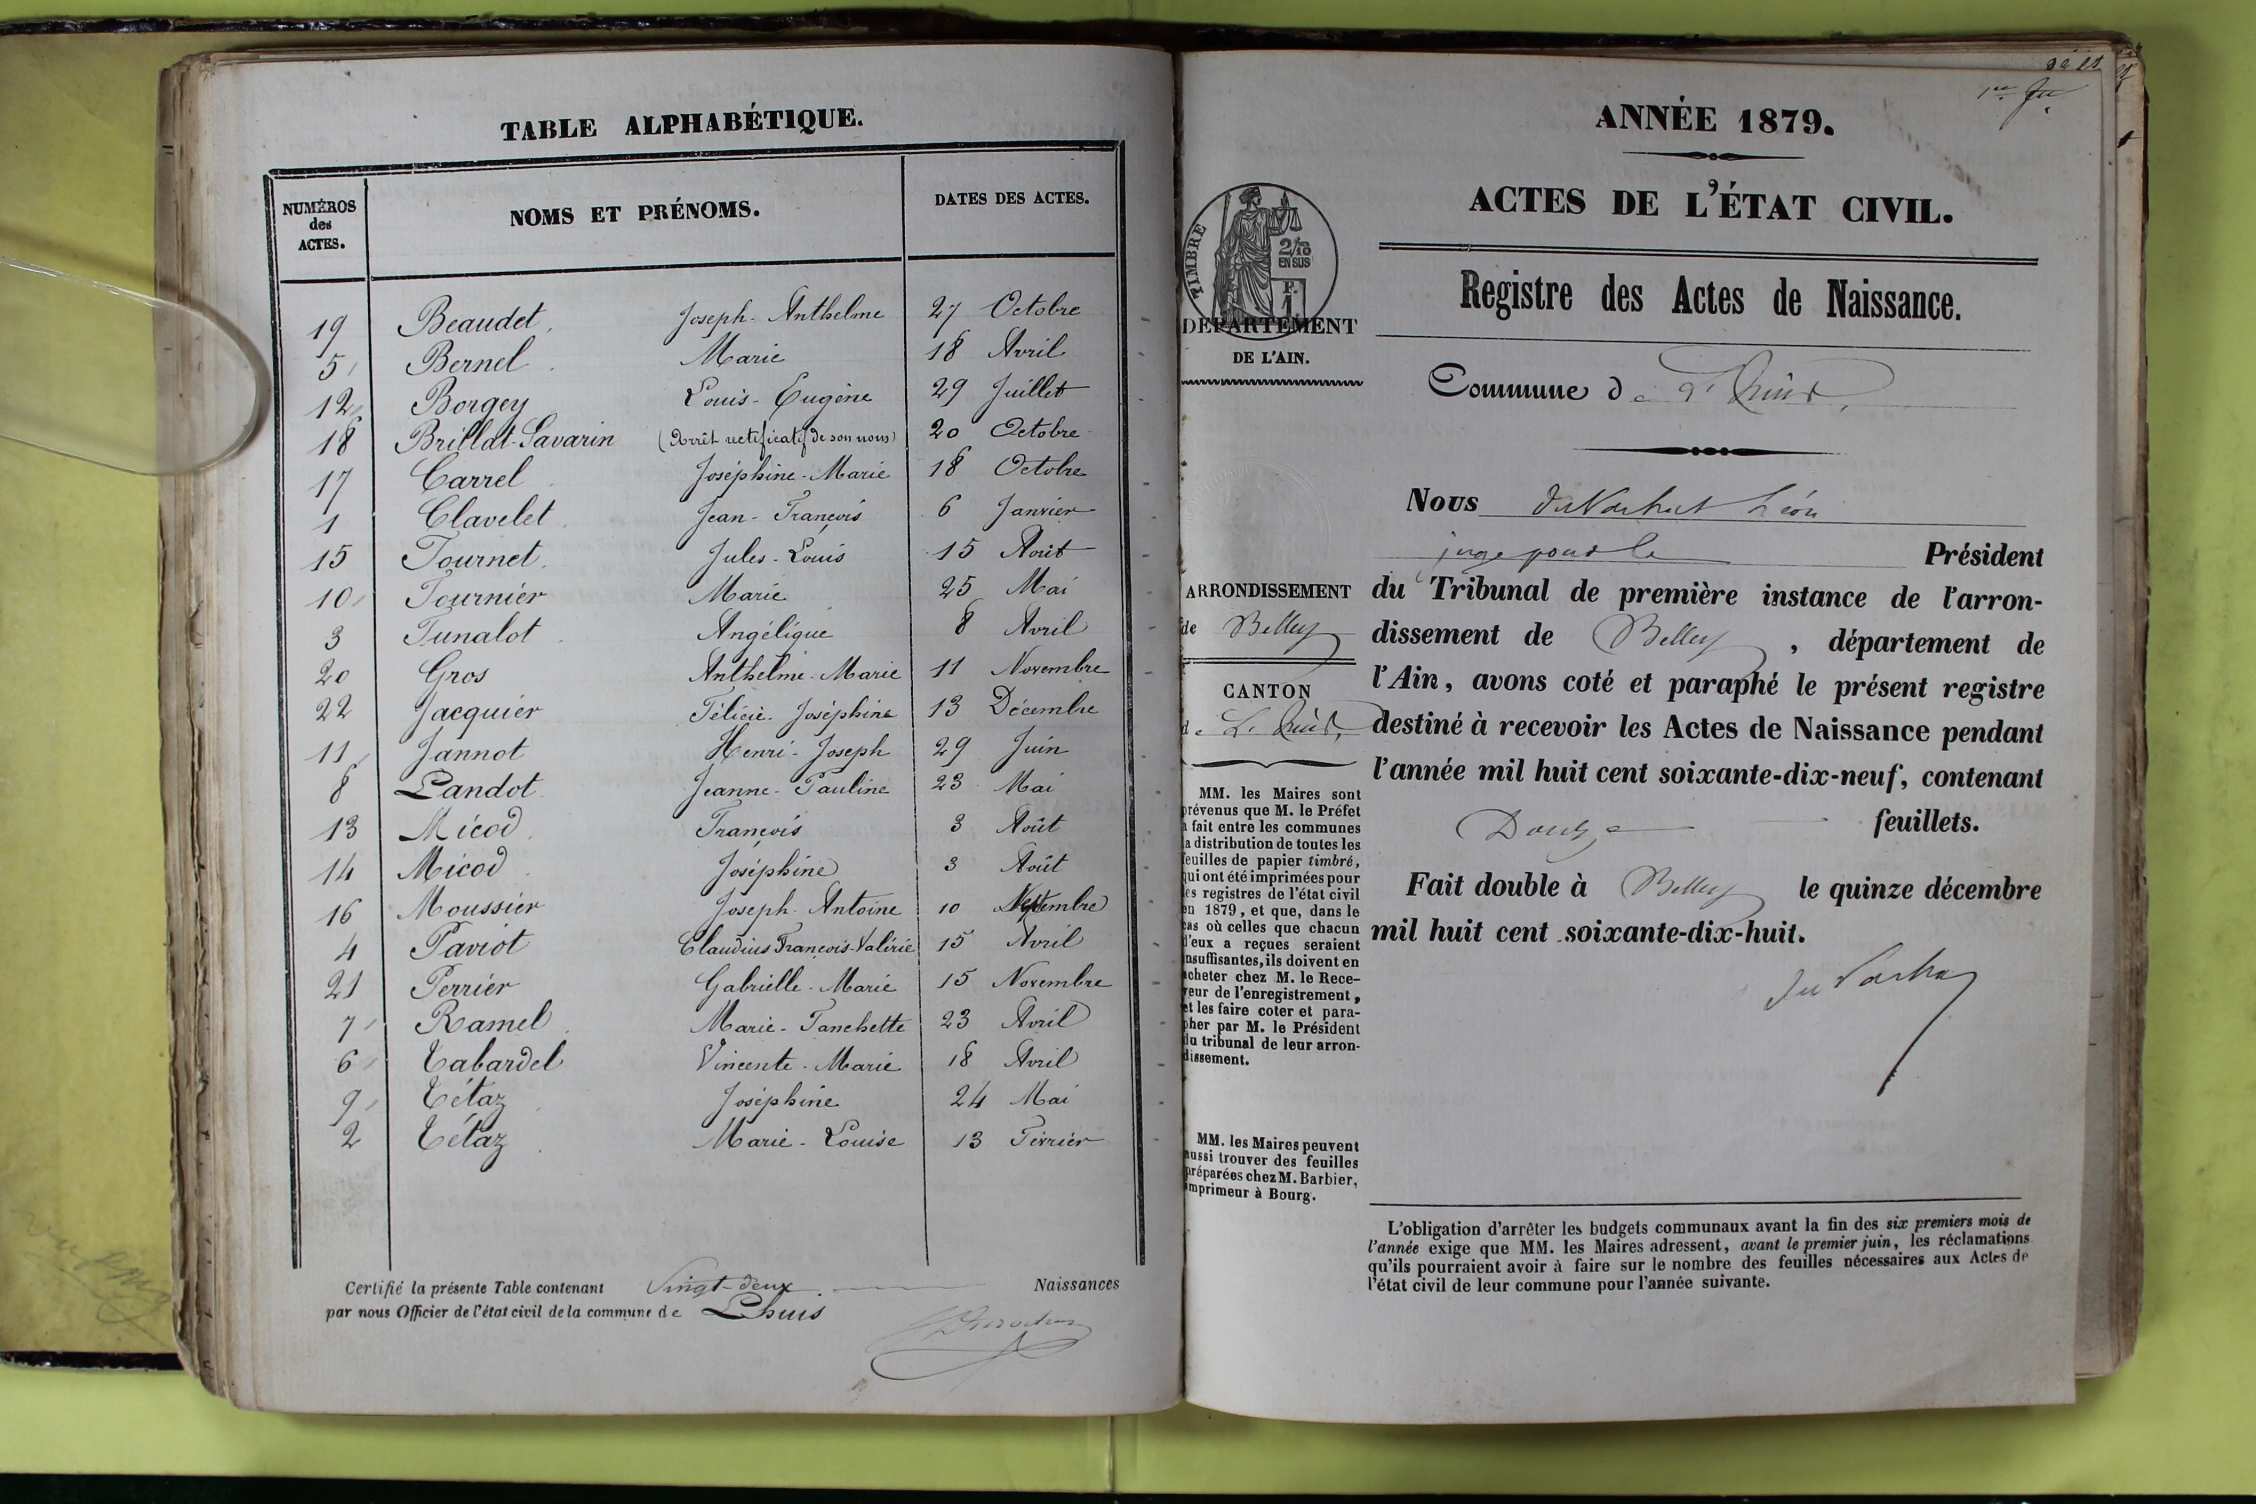 TABLE ALPHABÉTIQUE.
NUMÉROS des ACTES. NOMS ET PRÉNOMS. DATES DES ACTES.
19 Beaudet. Joseph-Anthelme 27 Octobre
5 Bernel. Marie 18 Avril
12 Borgey Louis-Eugène 29 Juillet
18 Brillat-Savarin (Arrêt rectificatif de son nom) 20 Octobre
17 Carrel. Joséphine-Marie 18 Octobre
1 Clavelet. Jean-François 6 Janvier
15 Fournet. Jules-Louis 15 Août
10 Fournier Marie 25 Mai
3 Funalot Angélique 8 Avril
20 Gros Anthelme-Marie 11 Novembre
22 Jacquier Félicie-Joséphine 13 Décembre
11 Jannot Henri-Joseph 29 Juin
8 Landot Jeanne-Pauline 23 Mai
13 Micod. François 3 Août
14 Micod. Joséphine 3 Août
16 Moussier Joseph-Antoine 10 Septembre
4 Paviot Claudius François-Valérie 15 Avril
21 Perrier Gabrielle-Marie 15 Novembre
7 Ramel. Marie-Fanchette 23 Avril
6 Tabardel Vincente-Marie 18 Avril
9 Tétaz Joséphine 24 Mai
2 Tétaz. Marie-Louise 13 Février
Certifié la présente Table contenant Vingt-deux. Naissances
par nous Officier de l'état civil de la commune de Lhuis
1er
ANNÉE 1879.
ACTES DE L'ÉTAT CIVIL.
Registre des Actes de Naissance.
TIMBRE
2/10
EN SUS
F.
1
DÉPARTEMENT
DE L'AIN.
Commune de Lhuis.
Nous Léon
juge pour le Président
du Tribunal de première instance de l'arron-
dissement de Belley, département de
l'Ain, avons coté et paraphé le présent registre
destiné à recevoir les Actes de Naissance pendant
l'année mil huit cent soixante-dix-neuf, contenant
Douze feuillets.
Fait double à Belley le quinze décembre
mil huit cent soixante-dix-huit.
ARRONDISSEMENT
de Belley
CANTON
de Lhuis,
MM. les Maires sont
prévenus que M. le Préfet
a fait entre les communes
la distribution de toutes les
feuilles de papier timbré,
qui ont été imprimées pour
les registres de l'état civil
en 1879, et que, dans le
cas où celles que chacun
d'eux a reçues seraient
insuffisantes, ils doivent en
acheter chez M. le Rece-
veur de l'enregistrement,
et les faire coter et para-
pher par M. le Président
du tribunal de leur arron-
dissement.
MM. les Maires peuvent
aussi trouver des feuilles
préparées chez M. Barbier,
imprimeur à Bourg.
L'obligation d'arrêter les budgets communaux avant la fin des six premiers mois de
l'année exige que MM. les Maires adressent, avant le premier juin, les réclamations
qu'ils pourraient avoir à faire sur le nombre des feuilles nécessaires aux Actes de
l'état civil de leur commune pour l'année suivante.